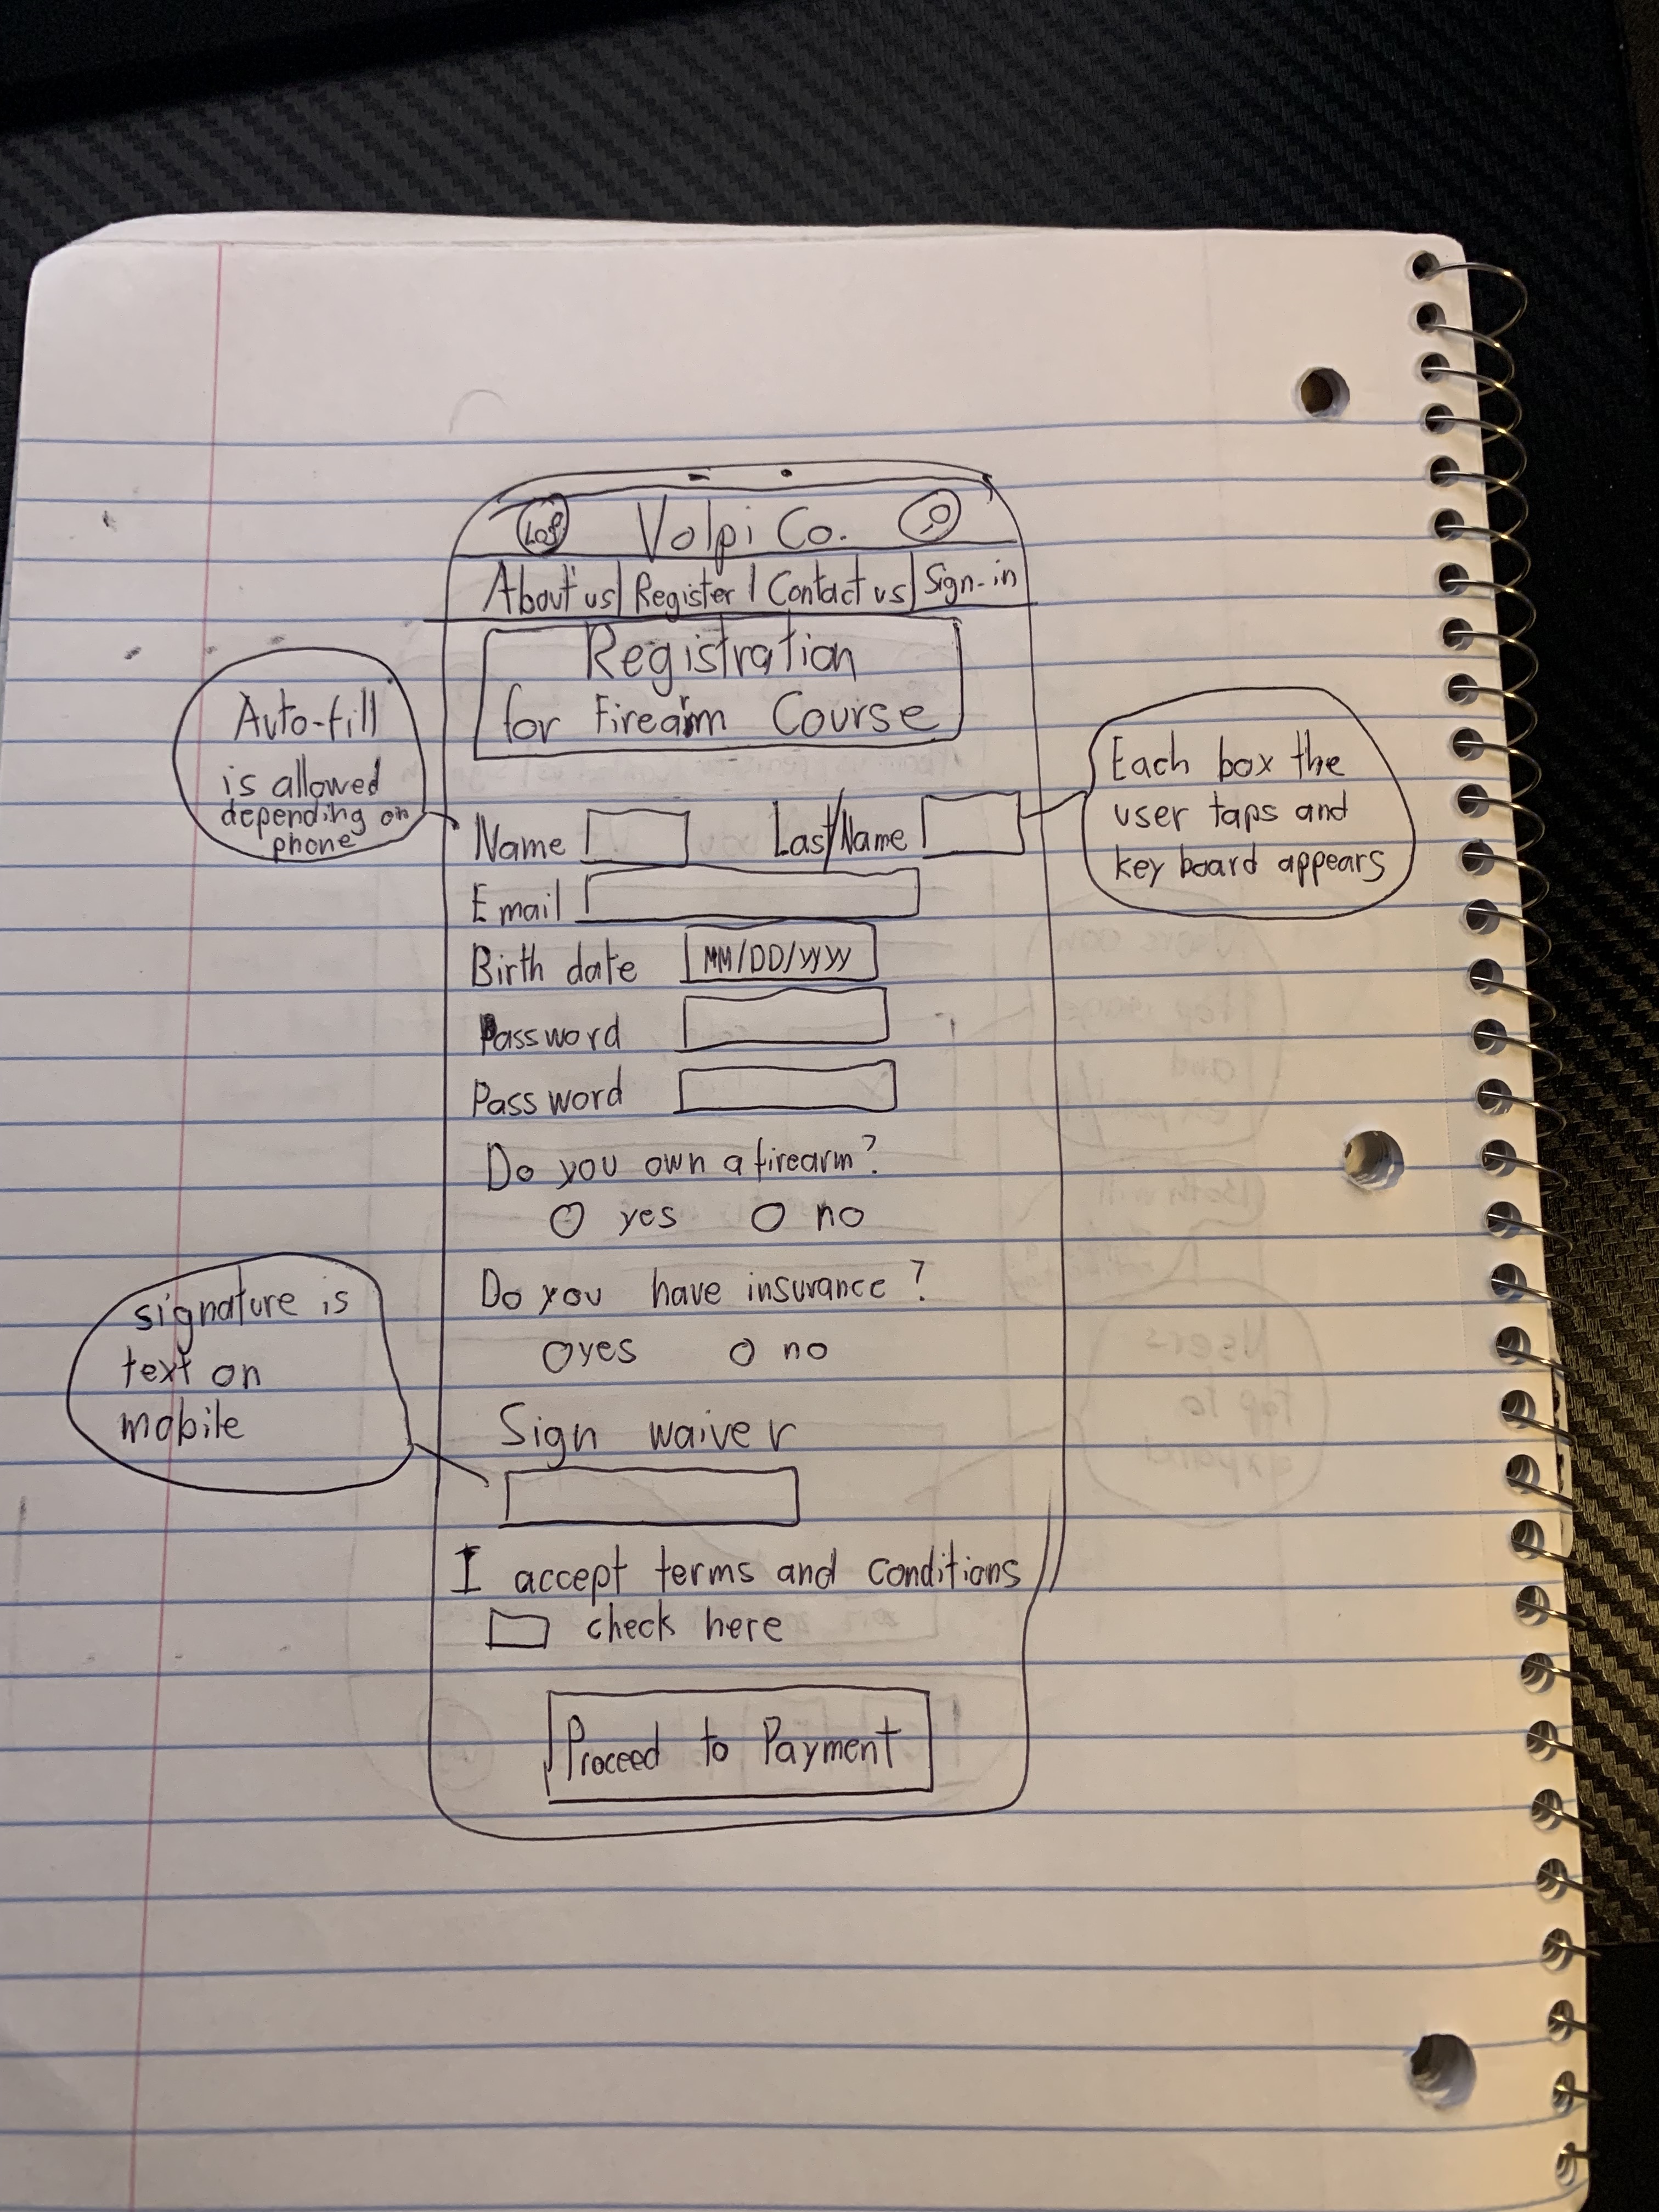 Logo Volpi Co.
About us | Register | Contact us | Sign-in
Registration
for Firearm Course
Auto-fill
is allowed
depending on
phone
Each box the
user taps and
key board appears
Name Last Name
Email
Birth date MM/DD/YYYY
Password
Password
Do you own a firearm?
yes no
Do you have insurance?
yes no
signature is
text on
mobile
Sign waiver
I accept terms and conditions
check here
Proceed to Payment